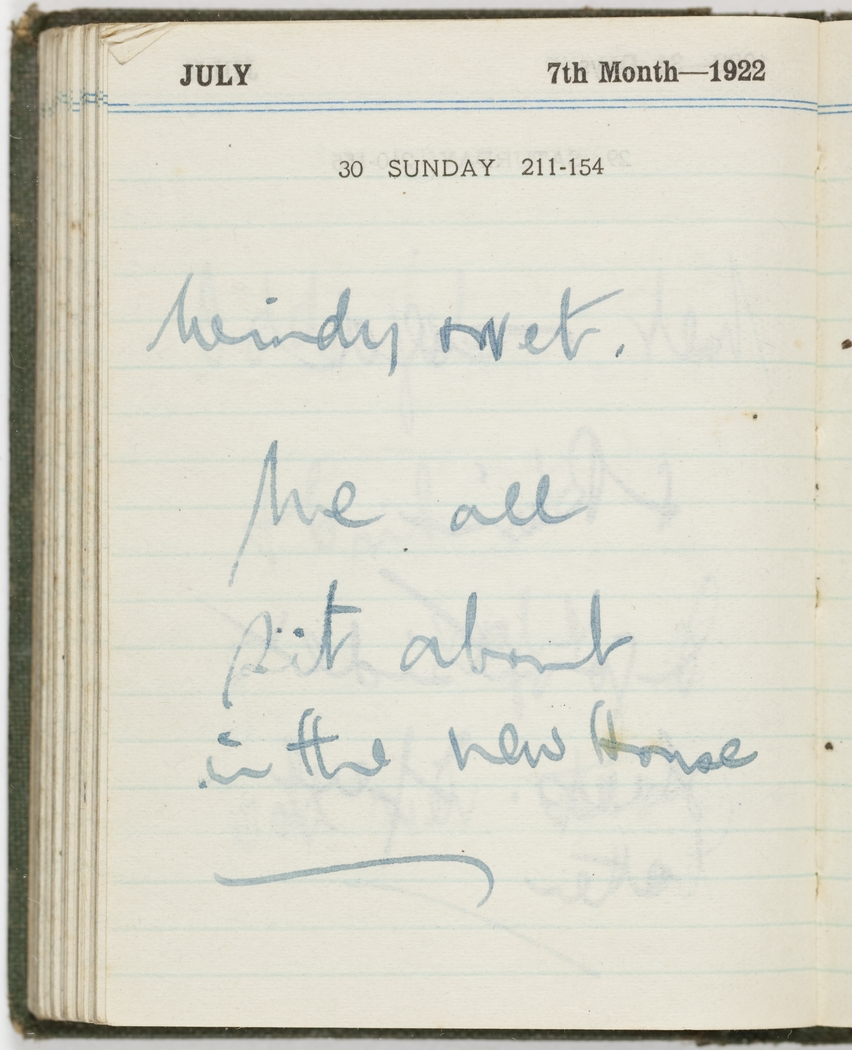 JULY 7th Month—1922
30 SUNDAY 211-154
Windy & wet.
We all
sit about
in the new House